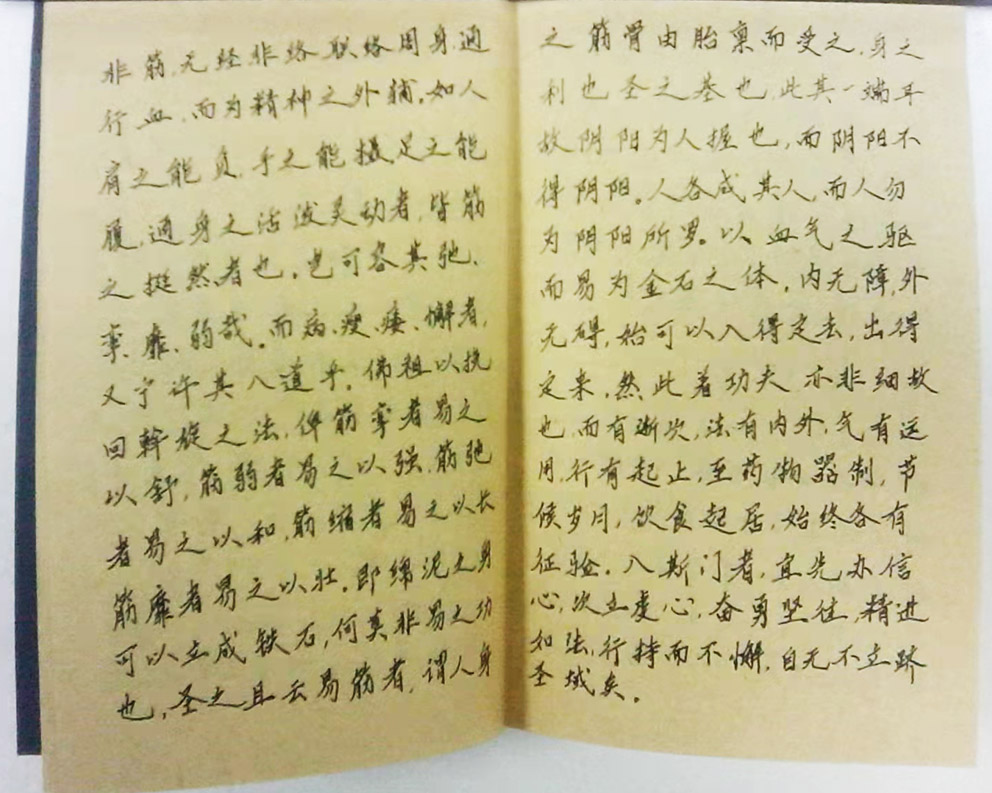 非筋,无经非络联络周身通
行血,而为精神之外辅。如人
肩之能负,手之能摄足之能
履,通身之活泼灵动者,皆筋
之挺然者也。岂可容其弛、
挛、靡、弱哉。而病、瘦、痿、懈者,
又宁许其入道乎。佛祖以挽
回斡旋之法,俾筋挛者易之
以舒,筋弱者易之以强,筋弛
者易之以和,筋缩者易之以长
筋靡者易之以壮。即绵泥之身
可以立成铁石,何莫非易之功
也,圣之且云易筋者,谓人身
之筋骨由胎禀而受之,身之
利也圣之基也,此其一端耳
故阴阳为人握也,而阴阳不
得阴阳。人各成其人,而人勿
为阴阳所罗。以血气之躯
而易为金石之体。内无障,外
无碍,始可以入得定去,出得
定来。然此着功夫亦非细故
也,而有渐次,法有内外,气有运
用,行有起止,至药物器制,节
候岁月,饮食起居,始终各有
征验。入斯门者,宜先办信
心,次立虔心,奋勇坚往,精进
如法,行持而不懈,自无不立跻
圣域矣。